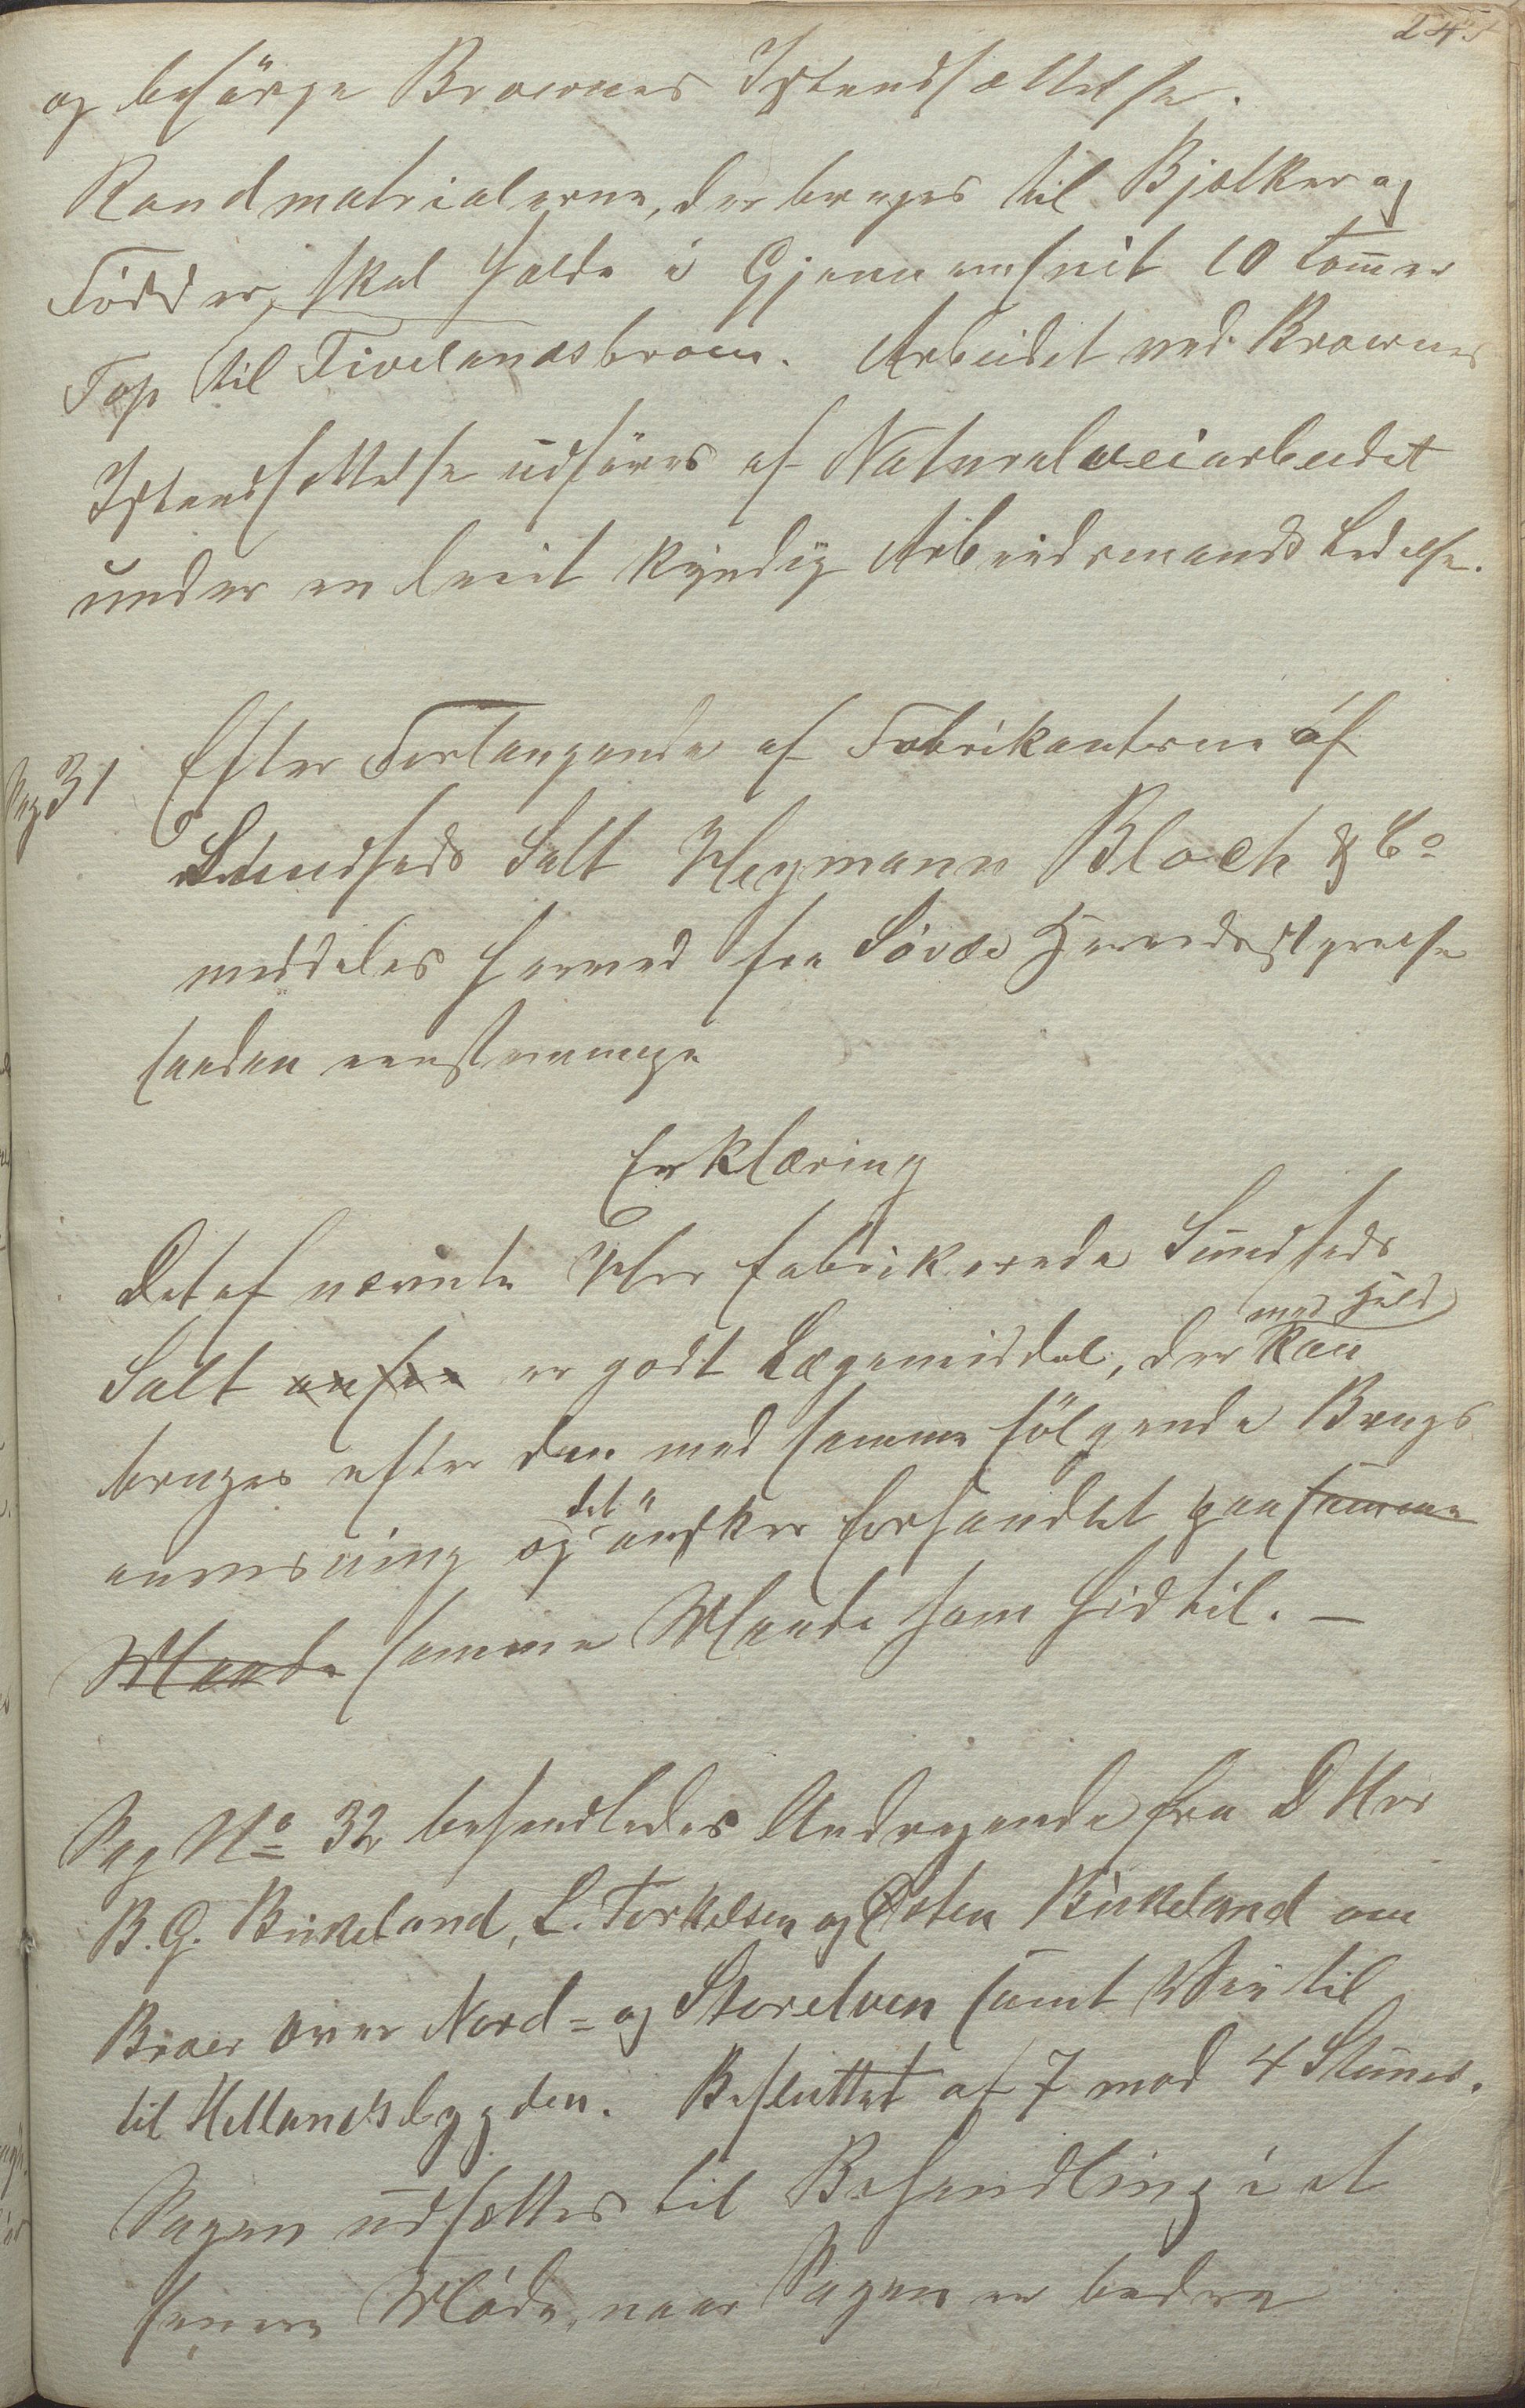 245
og besörge Broernes Istandsættelse.
Randmatrialerne, der bruges til Bjælker og
Födder, skal holde i Gjennemsnit 10 Tommer
Top til Fivelandsbroen. Arbeidet ved Broernes
Istandsættelse udføres af Naturalveiarbeidet
under en leiet kyndig Arbeidsmands Ledelse.
Sag 31 Efter Forlangende af Fabrikanterne af
Sundheds Salt Heymann Bloch & Co
meddeles herved fra Søvde Herredsstyrelse
saadan eenstemmige
Erklæring
Det af nævnte Hrr fabrikerede Sundheds
med Held
Salt er godt Lægemiddel, der kan
bruges efter den med samme følgende Brugs
det
anvisning og ønskes forhandlet paa samme
Maade samme Maade som hidtil. —
Sag No 32 behandledes Andragende fra D Hrr
B. G. Birkeland, L. Torkelsen og Østen Birkeland om
Broer over Nord- og Storelven samt Vei til
til Hellandsbygden. Besluttet af 7 mod 4 Stemer.
Sagen udsættes til Behandling i et
senere Møde, naar Sagen er bedre